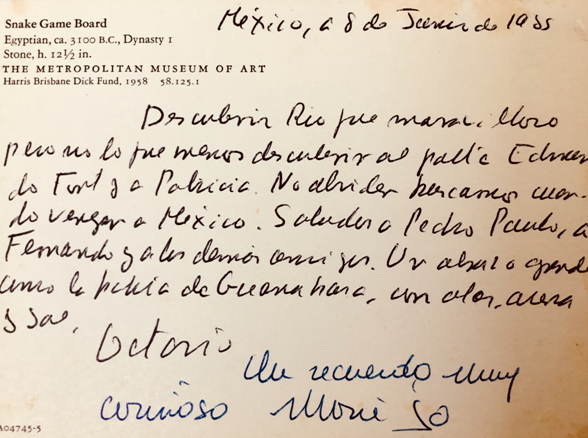 Snake Game Board
Egyptian, ca. 3100 B.C., Dynasty 1
Stone, h. 12½ in.
THE METROPOLITAN MUSEUM OF ART
Harris Brisbane Dick Fund, 1958 58.125.1
México, a 8 de Junio de 1985
Descubrir Rio fue maravilloso
pero no lo fue menos descubrir al poeta Eduar-
do y a Patricia. No olviden buscarnos cuan-
do vengan a México. Saludos a Pedro Paulo, a
Fernando y a los demás amigos. Un abrazo grande
como la bahía de Guanabara, con olas, arena
y sol,
Octavio
Un recuerdo muy
cariñoso Marie Jo
A04745-5